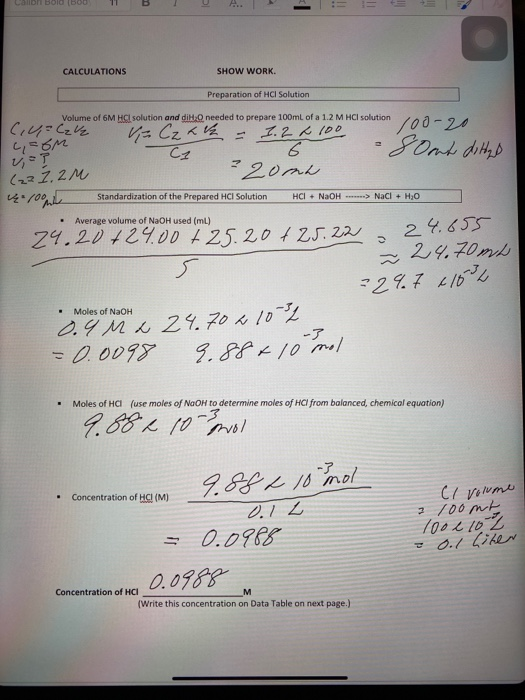 CALCULATIONS SHOW WORK.
Preparation of HCl Solution
Volume of 6M HCl solution and diH₂O needed to prepare 100mL of a 1.2 M HCl solution
C₁V₁ = C₂V₂
C₁ = 6M
V₁ = ?
C₂ = 1.2M
V₂ = 100mL
V₁ = C₂ x V₂ / C₁ = 1.2 x 100 / 6
= 20mL
100-20
= 80mL diH₂O
Standardization of the Prepared HCl Solution HCl + NaOH --------> NaCl + H₂O
• Average volume of NaOH used (mL)
24.20 + 24.00 + 25.20 + 25.22 / 5 = 24.655
≈ 24.70mL
= 24.7 x 10⁻³L
• Moles of NaOH
0.4 M x 24.70 x 10⁻³L
= 0.0098 9.88 x 10⁻³ mol
• Moles of HCl (use moles of NaOH to determine moles of HCl from balanced, chemical equation)
9.88 x 10⁻³ mol
• Concentration of HCl (M)
9.88 x 10⁻³ mol
0.1 L
= 0.0988
Cl volume
= 100 mL
100 x 10⁻³L
= 0.1 liter
Concentration of HCl 0.0988 M
(Write this concentration on Data Table on next page.)